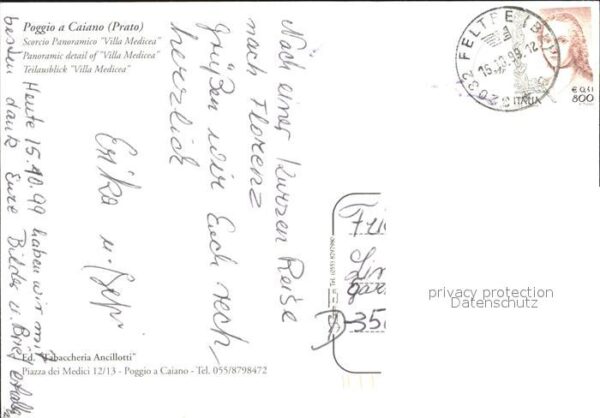 Poggio a Caiano (Prato)
Scorcio Panoramico "Villa Medicea"
Panoramic detail of "Villa Medicea"
Teilausblick "Villa Medicea"
Nach einer kurzen Reise
nach Florenz
grüßen wir Euch rech,
herzlich
Erika u. Bepi
Heute 15.10.99 haben wir mit
besten dank Eure Bilder u. Brief erhalt
32032 FELTRE (BL)
15.10.99.12
ITALIA
€ 0,41
800
Tel. (055) 8792990
D-35
privacy protection
Datenschutz
Ed. "Tabaccheria Ancillotti"
Piazza dei Medici 12/13 - Poggio a Caiano - Tel. 055/8798472